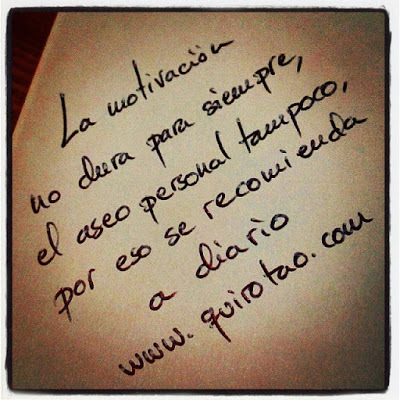 La motivación
no dura para siempre,
el aseo personal tampoco,
por eso se recomienda
a diario
www.quirotao.com